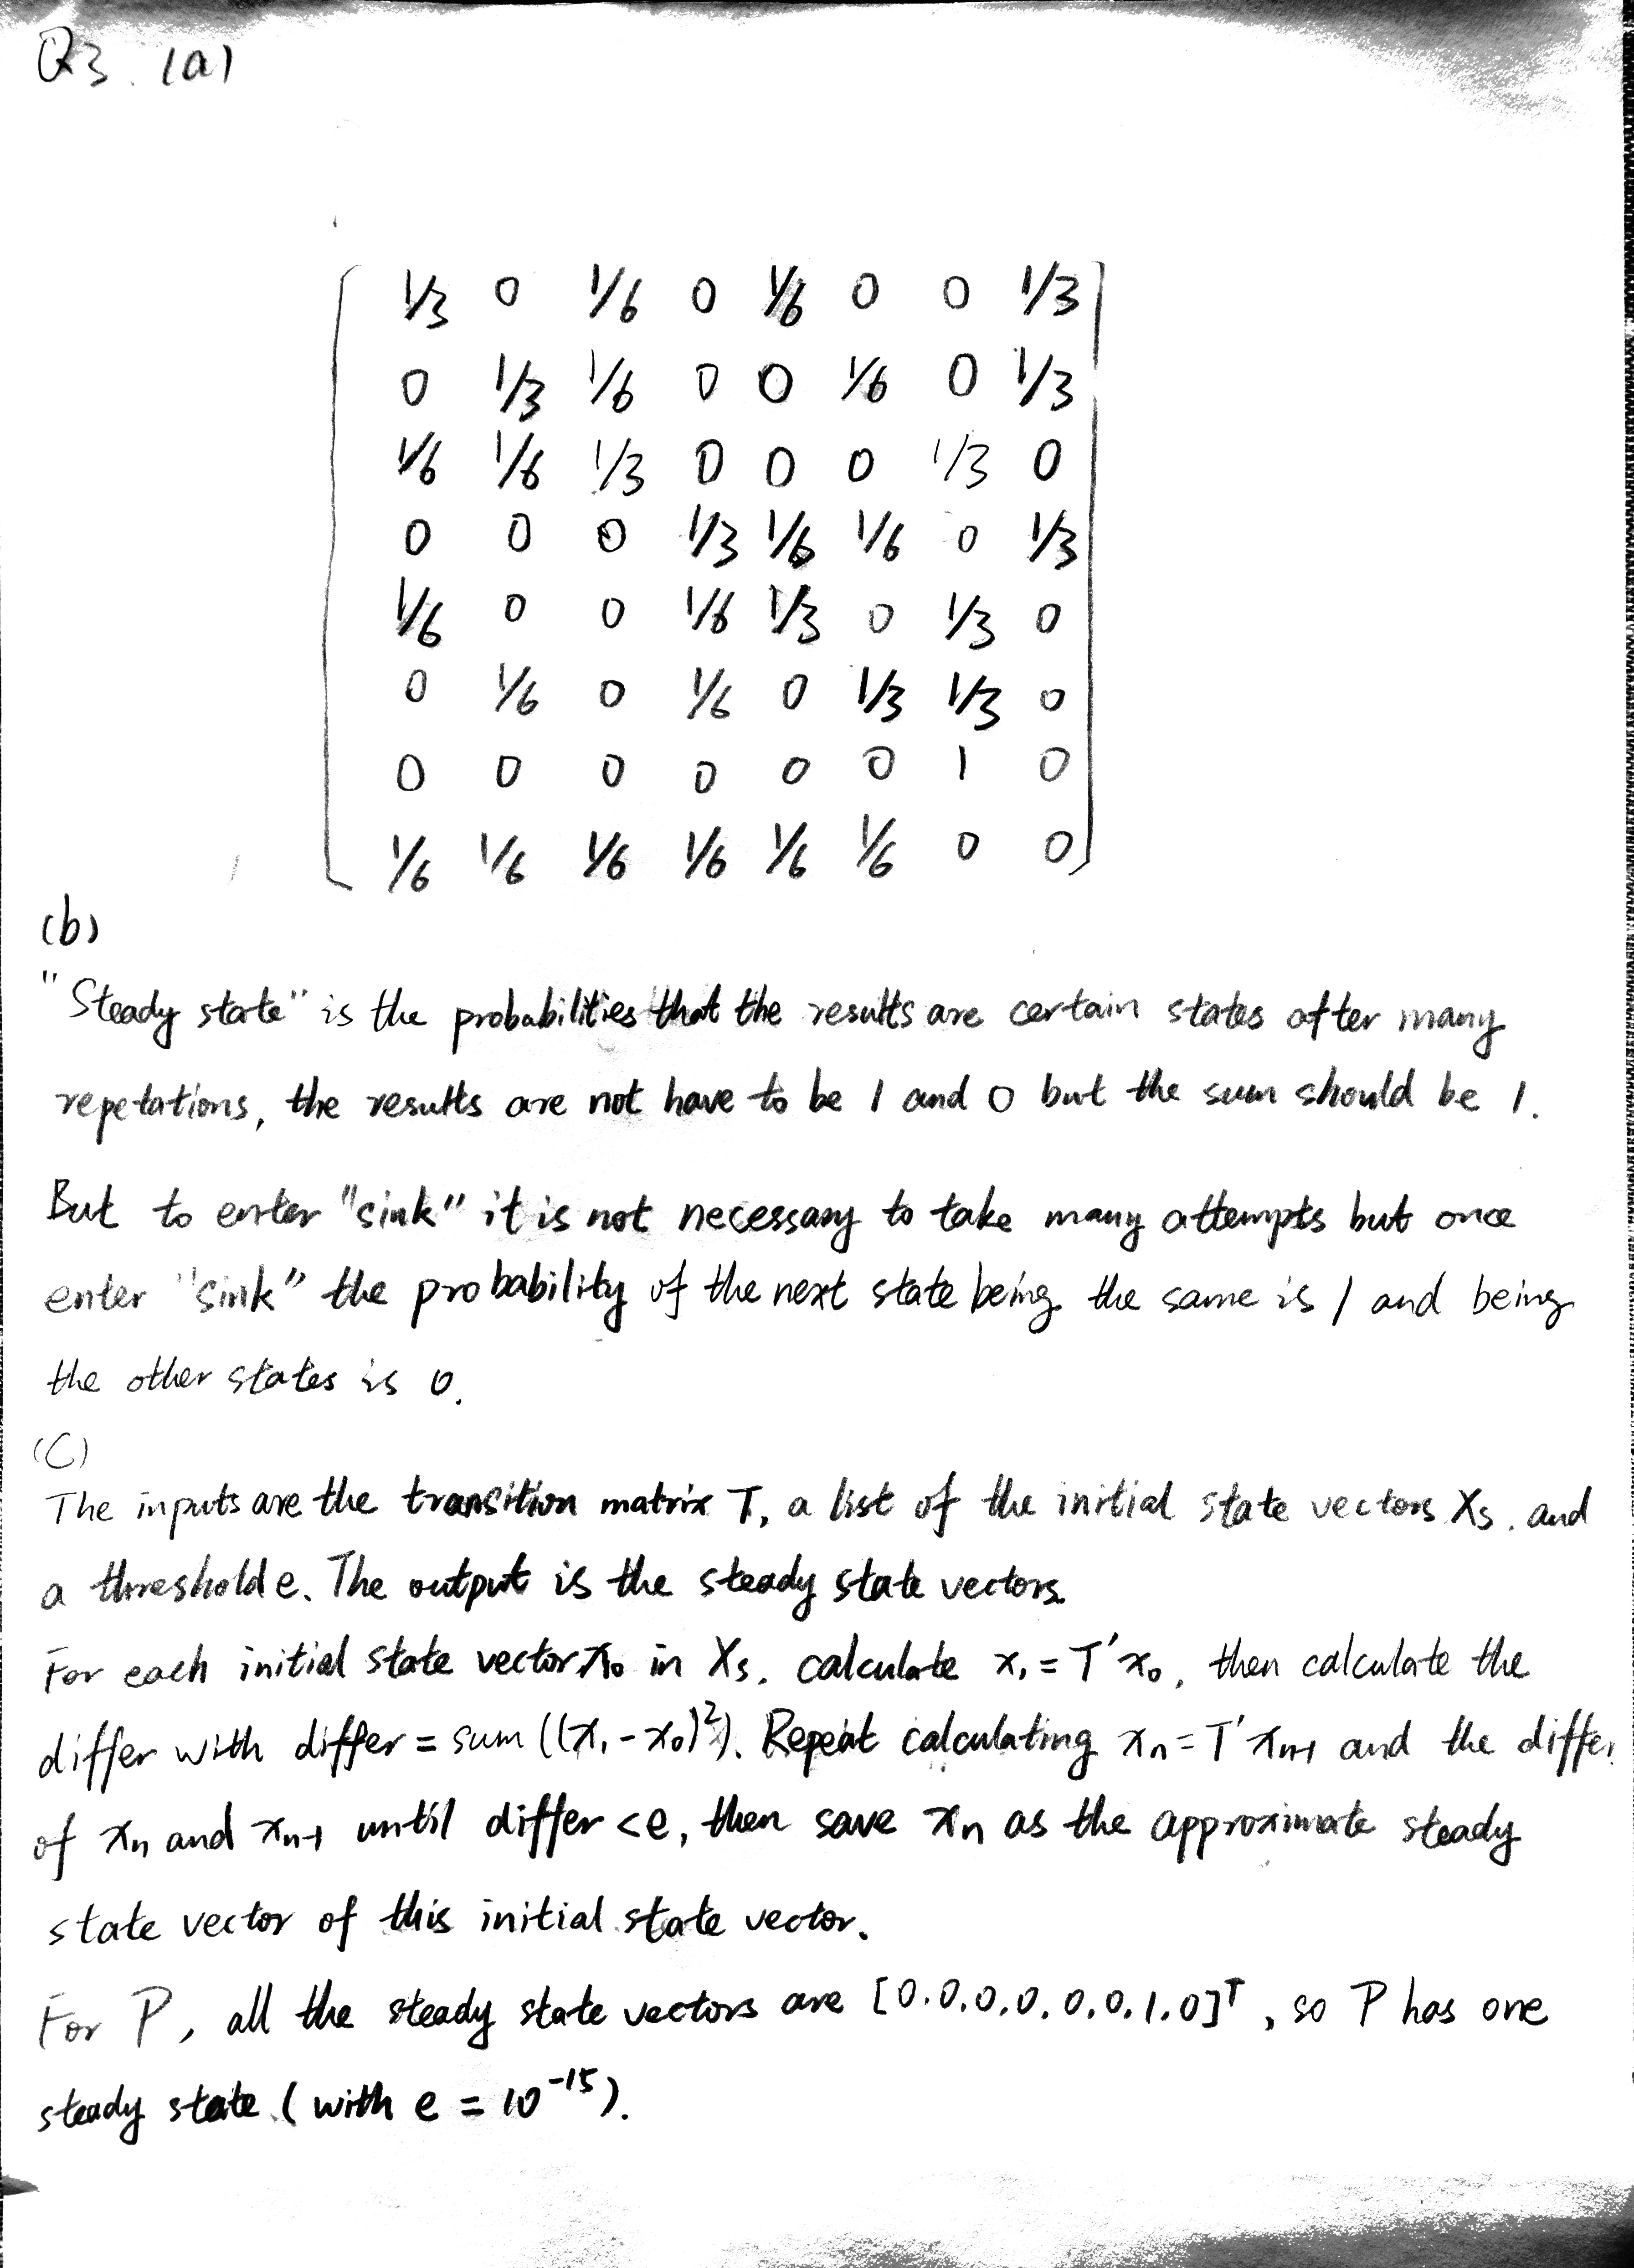 Q3. (a)
1/3 0 1/6 0 1/6 0 0 1/3
0 1/3 1/6 0 0 1/6 0 1/3
1/6 1/6 1/3 0 0 0 1/3 0
0 0 0 1/3 1/6 1/6 0 1/3
1/6 0 0 1/6 1/3 0 1/3 0
0 1/6 0 1/6 0 1/3 1/3 0
0 0 0 0 0 0 1 0
1/6 1/6 1/6 1/6 1/6 1/6 0 0
(b)
"Steady state" is the probabilities that the results are certain states after many
repetations, the results are not have to be 1 and 0 but the sum should be 1.
But to enter "sink" it is not necessary to take many attempts but once
enter "sink" the probability of the next state being the same is 1 and being
the other states is 0.
(C)
The inputs are the transition matrix T, a list of the initial state vectors Xs, and
a threshold e. The output is the steady state vectors.
For each initial state vector x₀ in Xs, calculate x₁ = T'x₀, then calculate the
differ with differ = sum ((x₁ - x₀)²). Repeat calculating xₙ = T'xₙ₋₁ and the differ
of xₙ and xₙ₋₁ until differ < e, then save xₙ as the approximate steady
state vector of this initial state vector.
For P, all the steady state vectors are [0.0.0.0.0.0.1.0]ᵀ, so P has one
steady state (with e = 10⁻¹⁵).